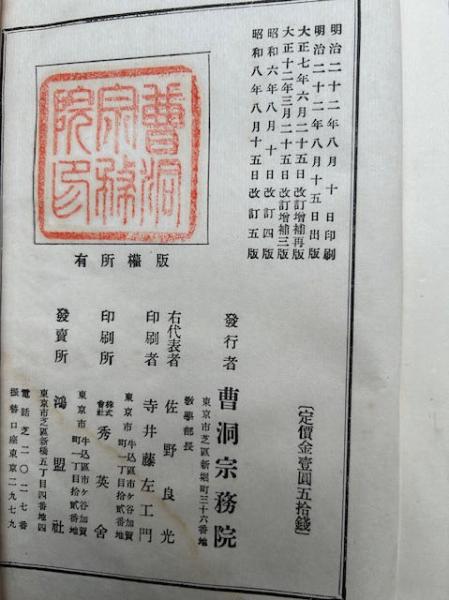 明治二十二年八月十日印刷
明治二十二年八月十五日出版
大正七年六月二十五日改訂增補再版
大正十二年三月二十五日改訂增補三版
昭和六年八月十日改訂四版
昭和八年八月十五日改訂五版
曹洞
宗務
院印
版權所有
〔定價金壹圓五拾錢〕
東京市芝區新堀町三十六番地
發行者 曹洞宗務院
敎學部長
右代表者 佐野良光
印刷者 寺井藤左工門
東京市牛込區市ケ谷加賀町一丁目拾貳番地
印刷所 株式會社 秀英舍
東京市牛込區市ケ谷加賀町一丁目拾貳番地
發賣所 鴻盟社
東京市芝區新橋五丁目四番地四
電話芝二〇二七番
振替口座東京二九七九